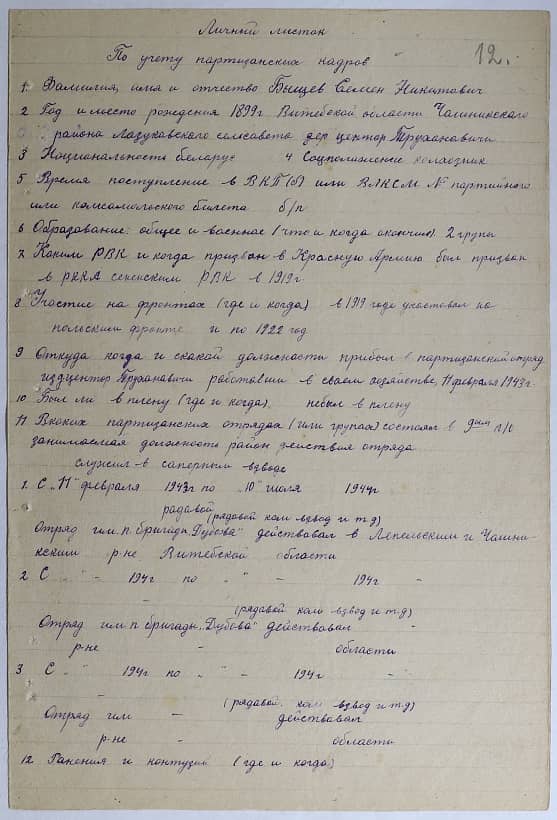 Личный листок
12.
По учету партизанских кадров
1. Фамилия, имя и отчество Бышев Семен Никитович
2 Год и место рождения 1899г Витебской области Чашникского
района Лазуковского сельсовета дер центор Труханавичи
3 Национальность беларус 4 Соцположение колхозник
5 Время поступление в ВКП(б) или ВЛКСМ № партийного
или комсомольского билета б/п
6 Образование: общее и военное (что и когда окончил) 2 групы
7 Каким РВК и когда призван в Красную Армию был призван
в РККА сененским РВК в 1919г
8 Участие на фронтах (где и когда) в 1919 годе участовал на
польским фронте и по 1922 год
9 Откуда когда и скакой должности прибыл в партизанский отряд
из д центор Труханавичи работавши в сваем хозяйстве, 11 февраля 1943г.
10 Был ли в плену (где и когда), небыл в плену
11 Вкаких партизанских отрядах (или групах) состоял в 9ом п/о
занимаемая должность район действия отряда
служил в саперным взводе
1. С "11" февраля 1943г по "10" июля 1944г
радавой
(рядовой ком взвод и т д)
Отряд им. п. бригады "Дубова" действовал в Лепельским и Чашни-
кским р-не Витебской области
2 С " - 194г по " - 194г -
(рядавой ком взвод и т.д)
Отряд им. п. бригады "Дубова" действовал -
р-не - области
3 С " 194г по " - 194г -
(рядавой. ком взвод и т д)
Отряд им - действовал
р-не - области
12 Ранения и контузий (где и когда)